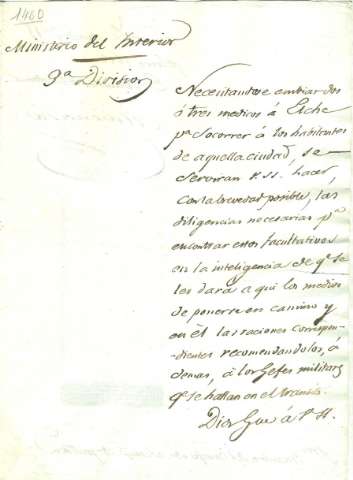 1460
Ministerio del Interior
9ª Division
Necesitandose embiar dos
ó tres medicos á Elche
pª socorrer á los habitantes
de aquella ciudad, se
serviran V.SS. hacer,
con la brevedad posible, las
diligencias necesarias pª
encontrar estos facultativos
en la inteligencia de qe se
les dará aqui los medios
de ponerse en camino y
en él las raciones correspon-
-dientes recomendandolos, á
demas, á los Gefes militares
qe se hallan en el transito.
Dios Gue á V.SS.